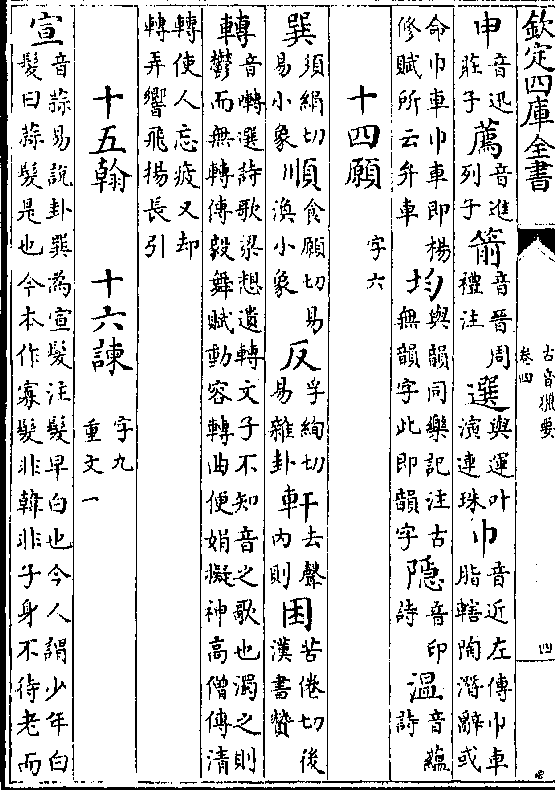 欽定四庫全書
古音獵要
卷四
四
申音迅莊子薦音進列子箭音晉周禮注選與運叶演連珠巾音近左傳巾車脂轄陶潛辭或
命巾車巾車即楊修賦所云弁車均與韻同樂記注古無韻字此即韻字隠音印詩溫音蘊詩
十四願字六
巽須絹切易小象順食願切易渙小象反孚絢切易雜卦軒去聲内則困苦倦切後漢書贊
轉音囀選詩歌梁想遺轉文子不知音之歌也濁之則鬱而無轉傅毅舞賦動容轉曲便娟擬神高僧傳清
轉使人忘疲又却轉弄響飛揚長引
十五翰 十六諫字九重文一
宣音蒜易說卦巽為宣髮注髮早白也今人謂少年白髮曰蒜髮是也今本作寡髮非韓非子身不待老而